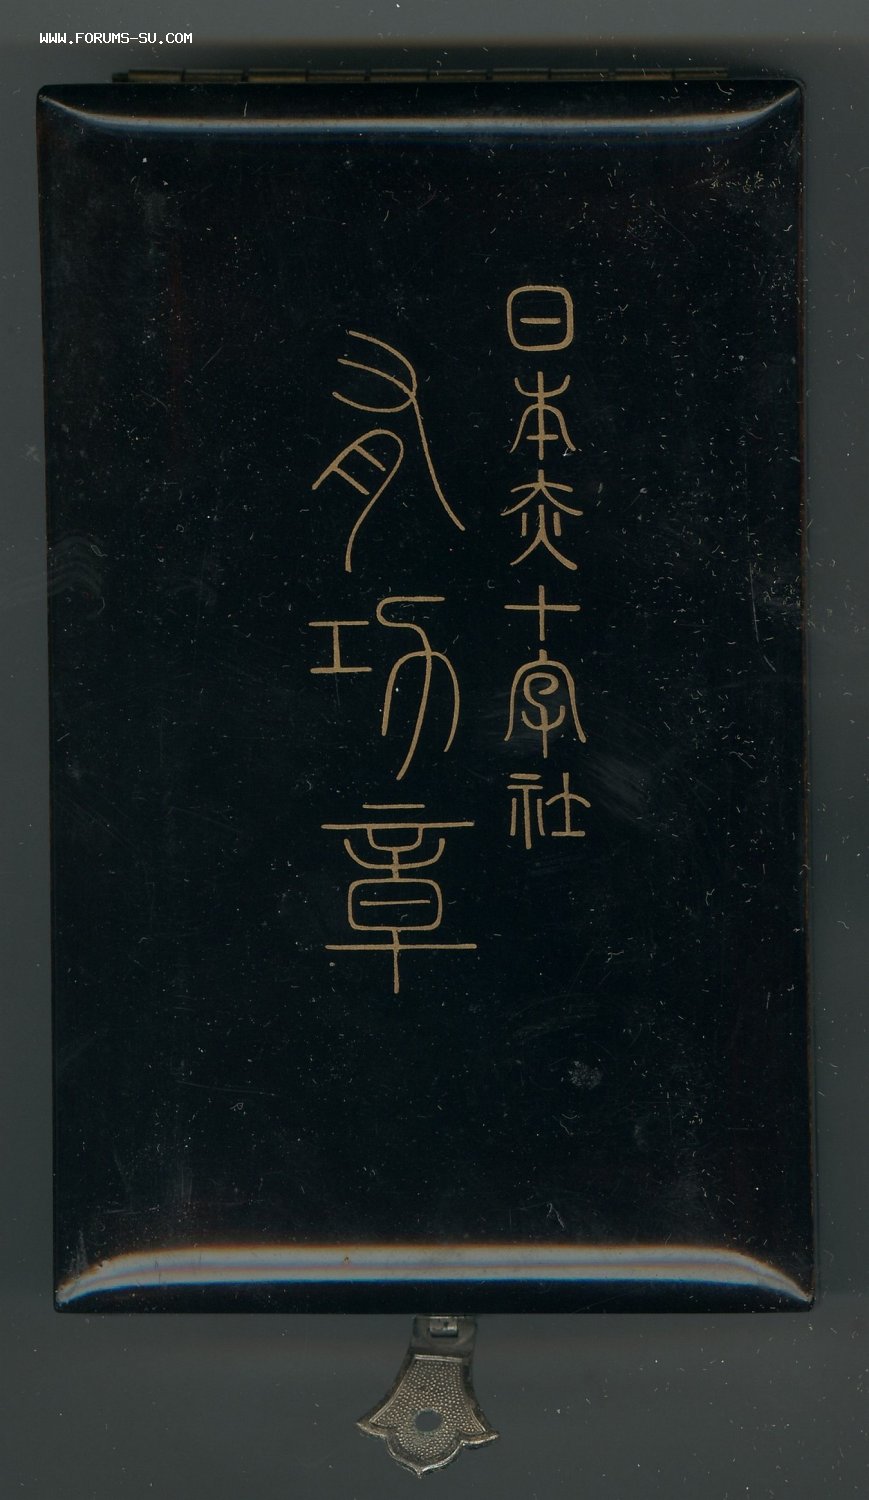 WWW.FORUMS-SU.COM
日本赤十字社
有功章